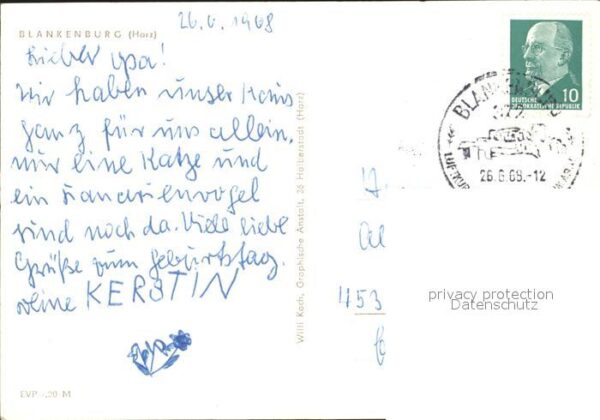 26.6.1968
BLANKENBURG (Harz)
Lieber Opa!
Wir haben unser Haus
ganz für uns allein,
nur eine Katze und
ein Kanarienvogel
sind noch da. Viele liebe
Grüße zum Geburtstag.
Deine KERSTIN
EVP -,20 M
Willi Koch, Graphische Anstalt, 36 Halberstadt (Harz)
10
DEUTSCHE
DEMOKRATISCHE REPUBLIK
BLANKENBURG
372
26.6.68.-12
453
privacy protection
Datenschutz